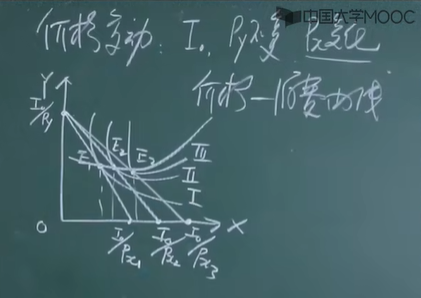 中国大学MOOC
价格变动: I₀ Py不变 Px变化
价格—消费曲线
Y
I₀/Py
E₁ E₂ E₃
III
II
I
O I₀/Px₁ I₀/Px₂ I₀/Px₃ X